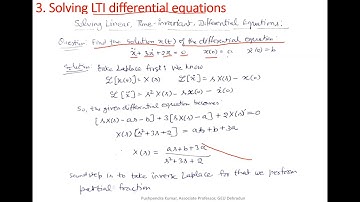 3. Solving LTI differential equations
Solving Linear, Time-invariant, Differential Equations:
Question: Find the solution x(t) of the differential equation
ẍ + 3ẋ + 2x = 0 x(0) = a ẋ(0) = b
Solution Take Laplace first! We know
L[x(t)] = X(s) L[ẋ] = sX(s) - x(0)
L[ẍ] = s²X(s) - sx(0) - ẋ(0)
So, the given differential equation becomes
[s²X(s) - as - b] + 3[sX(s) - a] + 2X(s) = 0
X(s)[s² + 3s + 2] = as + b + 3a
∴ X(s) = as + b + 3a / s² + 3s + 2
Second step is to take inverse Laplace for that we perform
partial fraction
Pushpendra Kumar, Associate Professor, GEU Dehradun